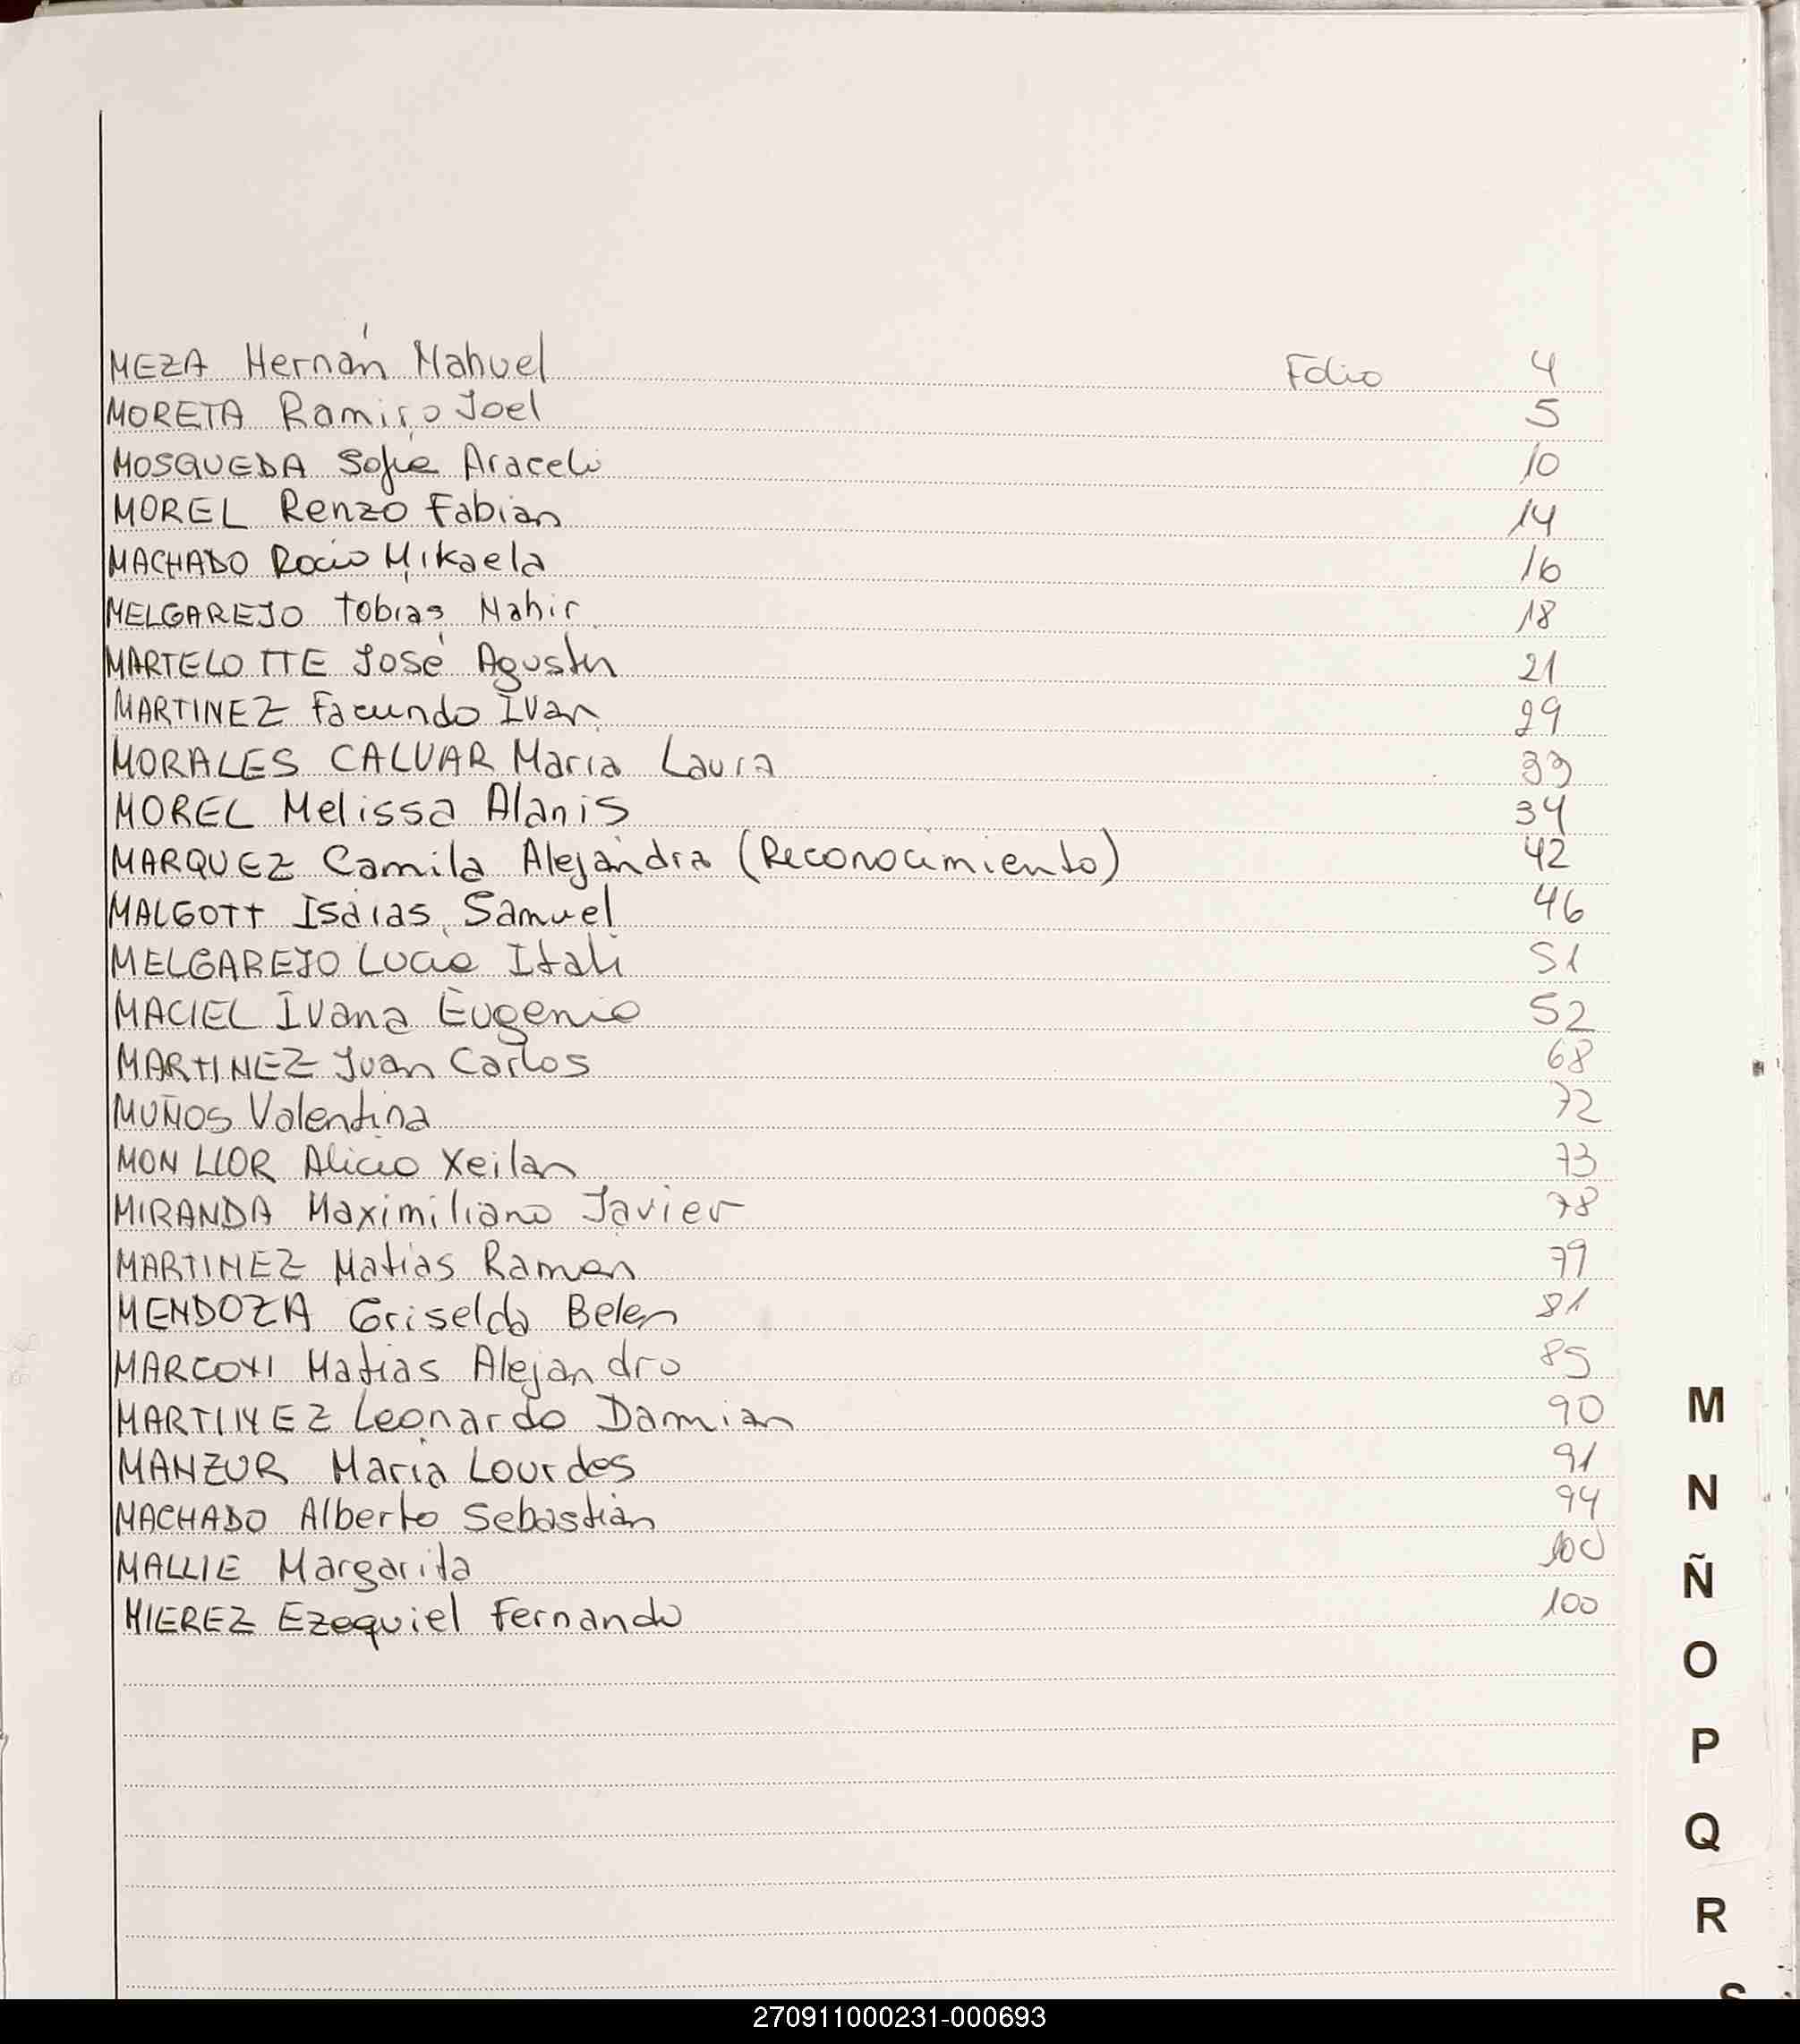 MEZA Hernán Nahuel Folio 4
MORETA Ramiro Joel 5
MOSQUEDA Sofia Araceli 10
MOREL Renzo Fabian 14
MACHADO Rocio Mikaela 16
MELGAREJO Tobias Nahir 18
MARTELOTTE José Agustin 21
MARTINEZ Facundo Ivan 29
MORALES CALVAR Maria Laura 33
MOREL Melissa Alanis 34
MARQUEZ Camila Alejandra (Reconocimiento) 42
MALGOTT Isaias Samuel 46
MELGAREJO Lucia Itati 51
MACIEL Ivana Eugenia 52
MARTINEZ Juan Carlos 68
MUÑOS Valentina 72
MONLLOR Alicia Xeilan 73
MIRANDA Maximiliano Javier 78
MARTINEZ Matias Ramon 79
MENDOZA Griselda Belen 81
MARCONI Matias Alejandro 85
MARTINEZ Leonardo Damian 90
M
MANZUR Maria Lourdes 91
N
MACHADO Alberto Sebastián 94
MALLIE Margarita 100
Ñ
MIEREZ Ezequiel Fernando 100
O
P
Q
R
S
270911000231-000693